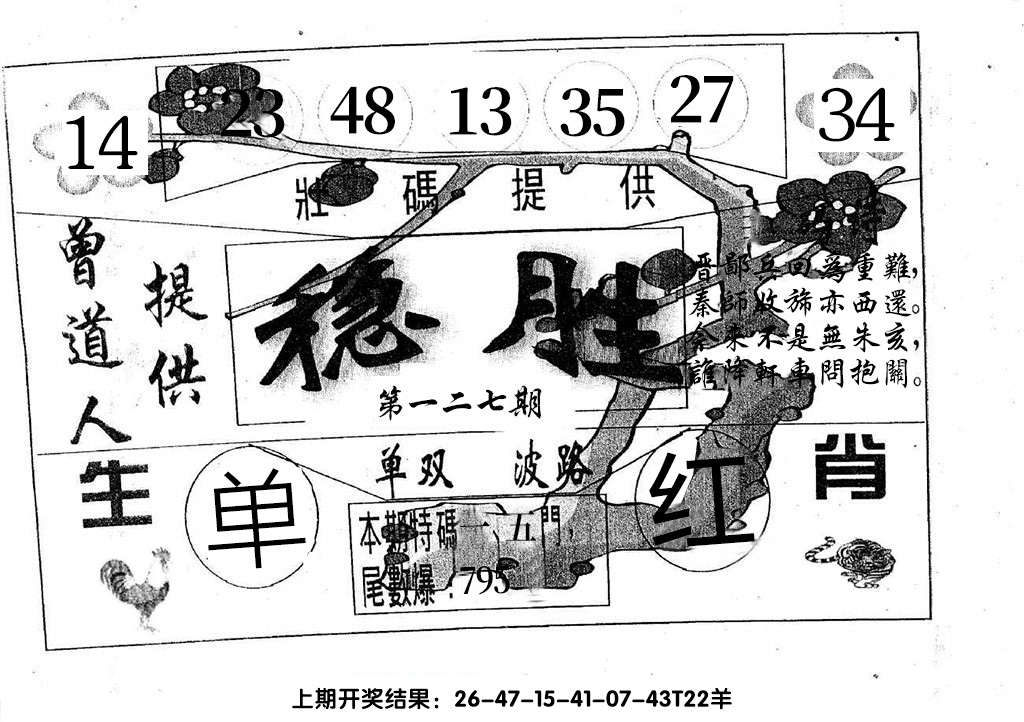 14 23 48 13 35 27 34
壯碼提供
特
曾道人
提供
稳胜
第一二七期
晋鄙兵回為重難，
秦師收旆亦西還。
今來不是無朱亥，
誰降軒車問抱關。
单双 波路
生肖
单
红
本期特碼一、五門，
尾數爆：795
上期开奖结果：26-47-15-41-07-43T22羊